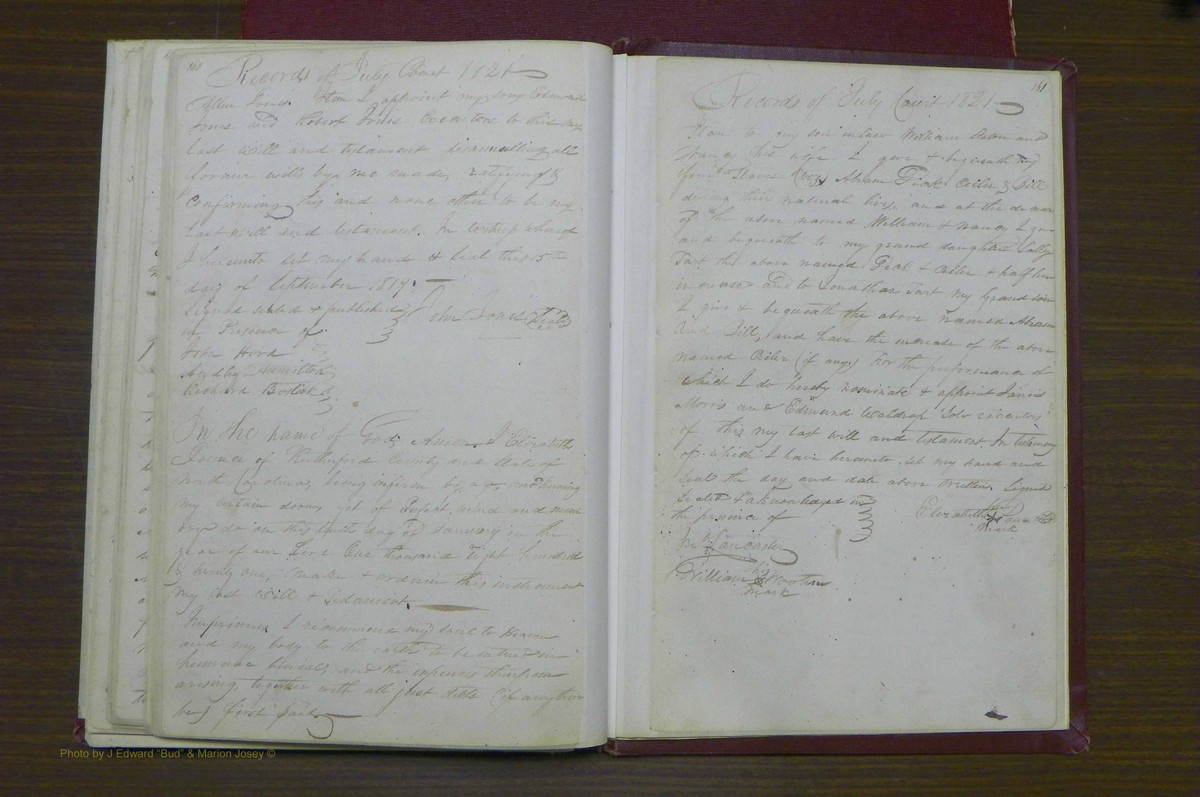 160
Records of July Court 1821
Allen Jones. Item I appoint my sons Edmund
Jones and Robert Jones Executors to this my
last will and testament disannulling all
former wills by me made, ratifying &
confirming this and none other to be my
last will and testament. In testimony whereof
I hereunto set my hand & seal this 15
day of September 1819.
Signed sealed & published
in Presence of
John Jones Seal
John Hord
Hamilton
Richard Bostick
In the name of God, Amen I Elizabeth
of Rutherford County and State of
North Carolina, being infirm by age, and knowing
my certain doom, yet of Perfect mind and mem
ory do on this day of January in the
year of our Lord One thousand Eight hundred
& twenty one, make & ordain this instrument
my last will & testament
Imprimis I recommend my soul to Heaven
and my body to the earth to be interred in
humane burial, and the expences therefrom
arising, together with all just debts (if any there
be) first paid
161
Records of July Court 1821
Item to my son in law William and
Nancy his wife I give & bequeath my
four Slaves Abram & Bill
during their natural lives, and at the demise
of the above named William & Nancy I give
and bequeath to my grand daughter Sally
Tart the above named & & half her
increase and to Jonathan Tart my Grand son
I give & bequeath the above named Abram
and Bill, and have the increase of the above
named (if any) For the performance of
which I do hereby nominate & appoint
Morris and Edmund Waldrop Sole executors
of this my last will and testament. In testimony
of which I have hereunto set my hand and
seal the day and date above written Signed
Sealed & acknowledged in
the presence of
Elizabeth her mark
Wm Lancaster
William his Wootan
mark
Photo by J Edward "Bud" & Marion Josey ©